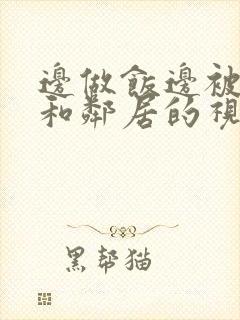 邊做飯邊被
和鄰居的視
黑幫猫